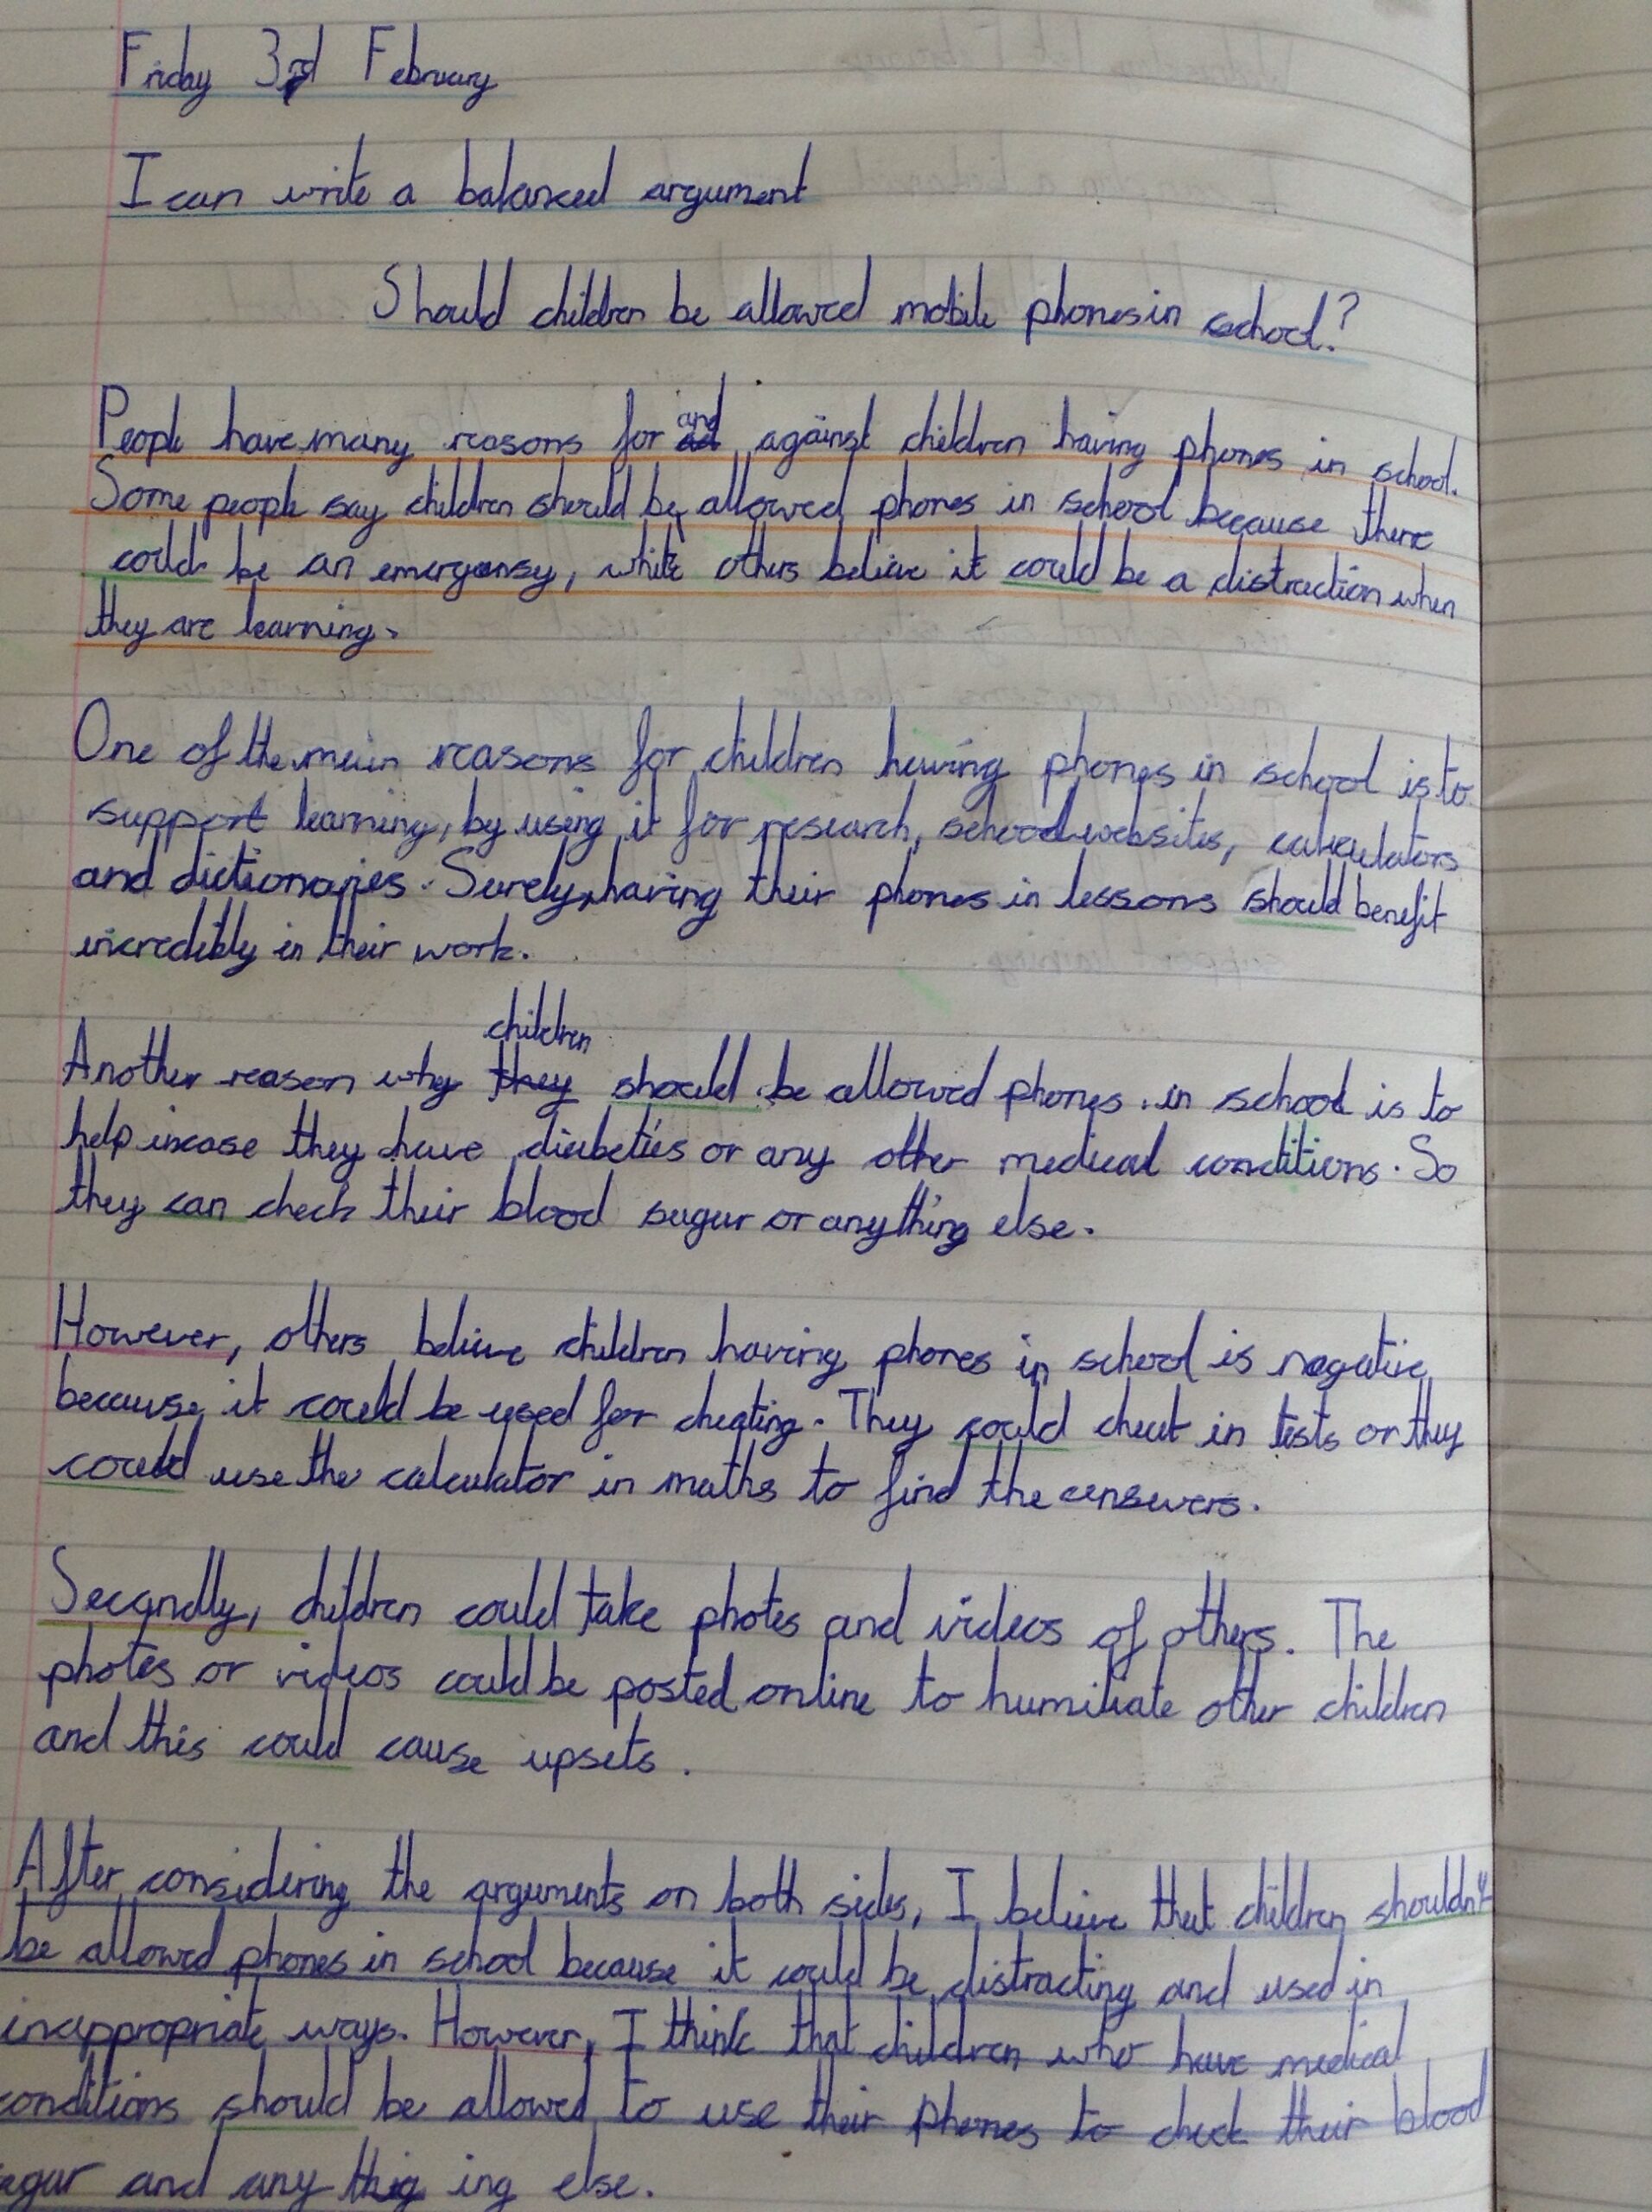 Friday 3rd February
I can write a balanced argument
Should children be allowed mobile phones in school?
People have many reasons for and against children having phones in school.
Some people say children should be allowed phones in school because there
could be an emergensy, while others believe it could be a distraction when
they are learning.
One of the main reasons for children having phones in school is to
support learning, by using it for research, school websites, calculators
and dictionaries. Surely, having their phones in lessons should benefit
incredibly in their work.
Another reason why children should be allowed phones in school is to
help incase they have diabeties or any other medical conditions. So
they can check their blood sugar or anything else.
However, others believe children having phones in school is negative
because it could be used for cheating. They could cheat in tests or they
could use the calculator in maths to find the answers.
Secondly, children could take photos and videos of others. The
photos or videos could be posted online to humiliate other children
and this could cause upsets.
After considering the arguments on both sides, I believe that children shouldn't
be allowed phones in school because it could be distracting and used in
inappropriate ways. However, I think that children who have medical
conditions should be allowed to use their phones to check their blood
sugar and any thig ing else.